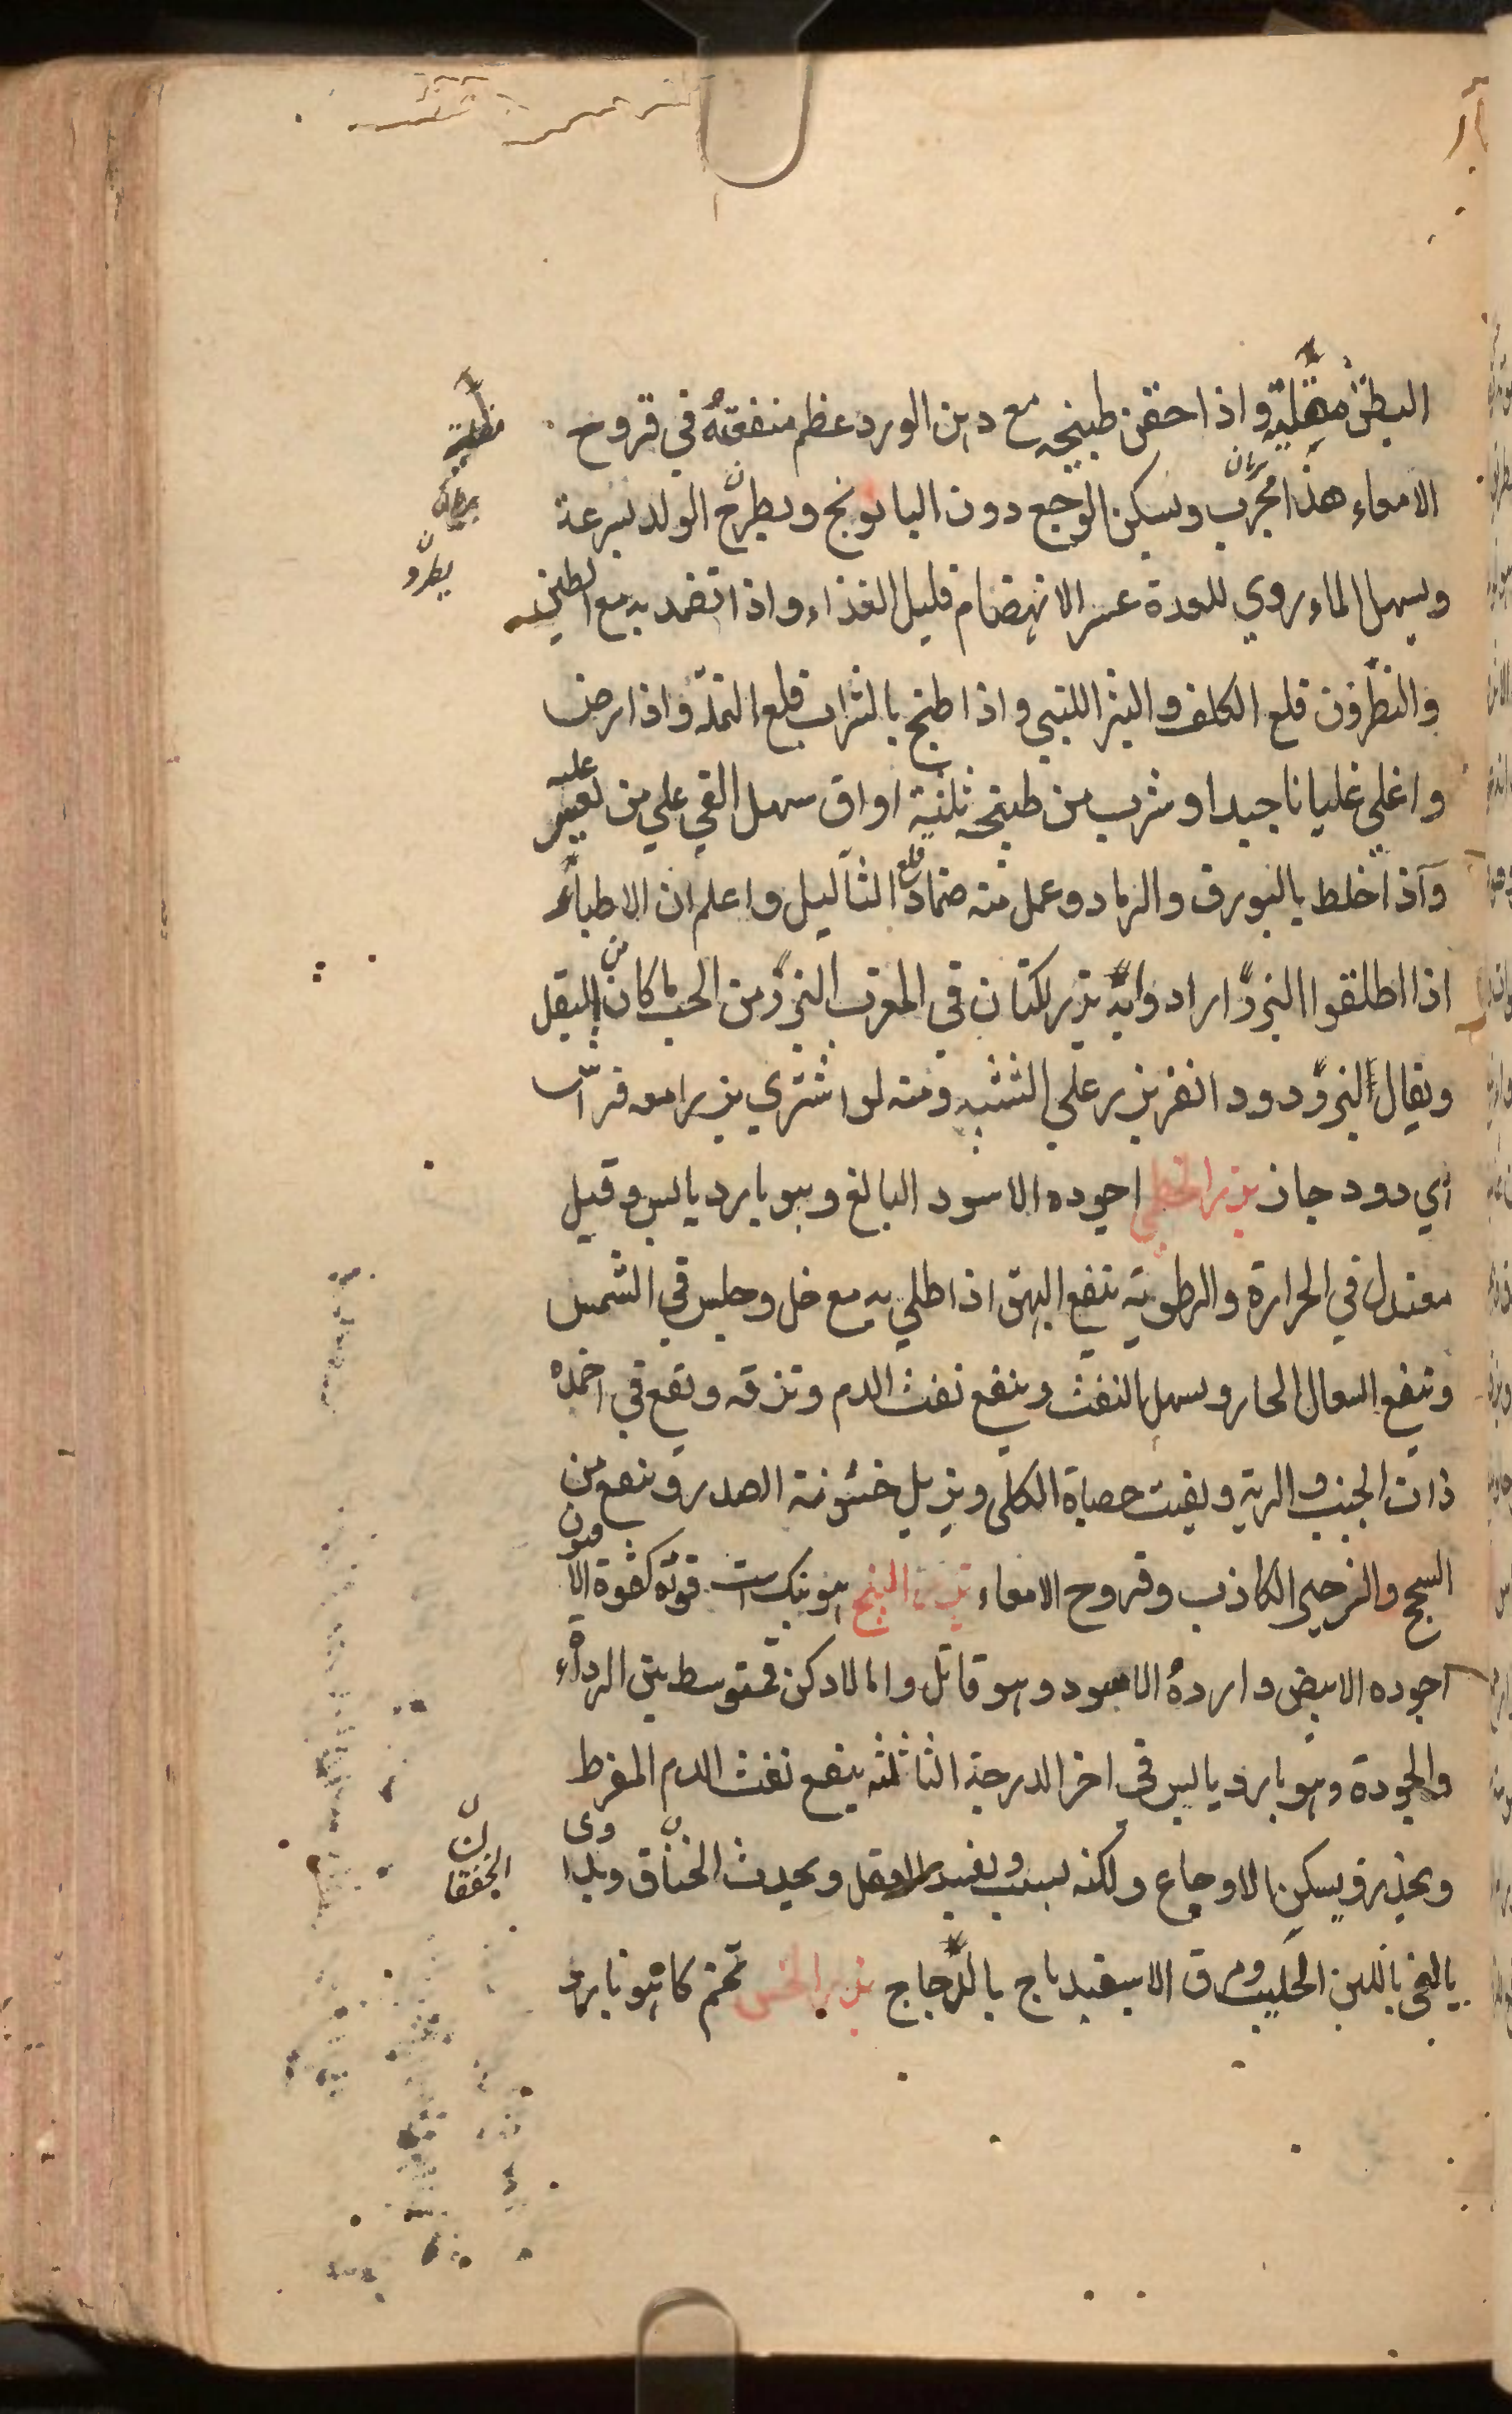 البطن مقلية واذا احقن طبيخه مع دهن الورد عظم منفعته في قروح
الامعاء هذا مجرب ويسكن الوجع دون البابونج ويطرح الولد بسرعة
ويسهل الماء روي للمعدة عسر الانهضام قليل الغذاء واذا تضمد به مع التين
والنطرون قلع الكلف والبثر اللبني واذا طبخ بالشراب قلع النملة واذا رض
واغلي غليانا جيدا وشرب من طبيخه ثلثة اواق سهل القي علي من تعسر عليه
واذا خلط بالبورق والرماد وعمل منه ضماد قلع الثآليل واعلم ان الاطباء
اذا اطلقوا البزر ارادوا به بزر كتان في المغرب البزر من الحب ما كان من البقل
ويقال البزر دود القز بزر علي التشبيه ومنه لو اشتري بزرا معه فراش
اي دود جاز بزر الخطمي اجوده الاسود البالغ وهو بارد يابس وقيل
معتدل في الحرارة والرطوبة ينفع البهق اذا طلي به مع خل وجلس في الشمس
وينفع السعال الحار ويسهل النفث وينفع نفث الدم ونزفه ويقع في اضمدة
ذات الجنب والرية ويفتت حصاة الكلى ويزيل خشونة الصدر وينفع من
السحج والزحير الكاذب وقروح الامعاء بزر البنج هو بنك است قوته كقوة الافيون
اجوده الابيض واردؤه الاسود وهو قاتل واما الادكن فمتوسط بين الرداءة
والجودة وهو بارد يابس في اخر الدرجة الثالثة ينفع نفث الدم المفرط
ويخدر ويسكن الاوجاع ولكنه يسبت ويفسد العقل ويحدث الخناق ويداوى
بالقي باللبن الحليب ومرق الاسفيدباج بالدجاج بزر الخس تخم كاهو بارد
مقلية
يطرد
الخفقان